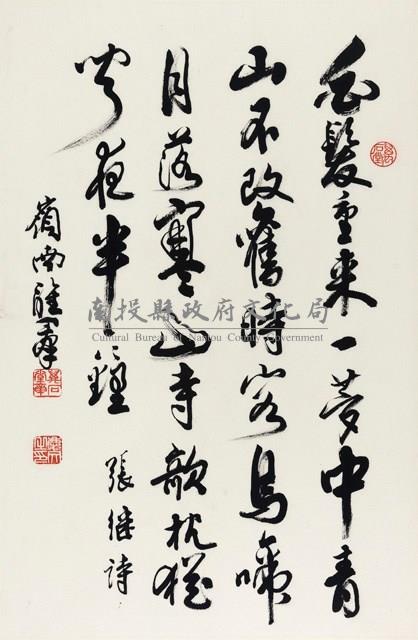 白髮重來一夢中青
山不改舊時容烏啼
月落寒山寺欹枕猶
聞夜半鐘
張繼詩
嶺南
南投縣政府文化局
Cultural Bureau of Nantou County Government